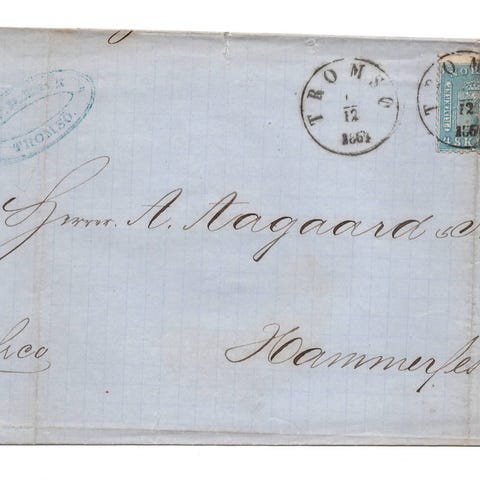 TROMSO.
TROMSØ
12
1864
TROM
12
186
SK
Herrer A. Aagaard &
Hammerfes